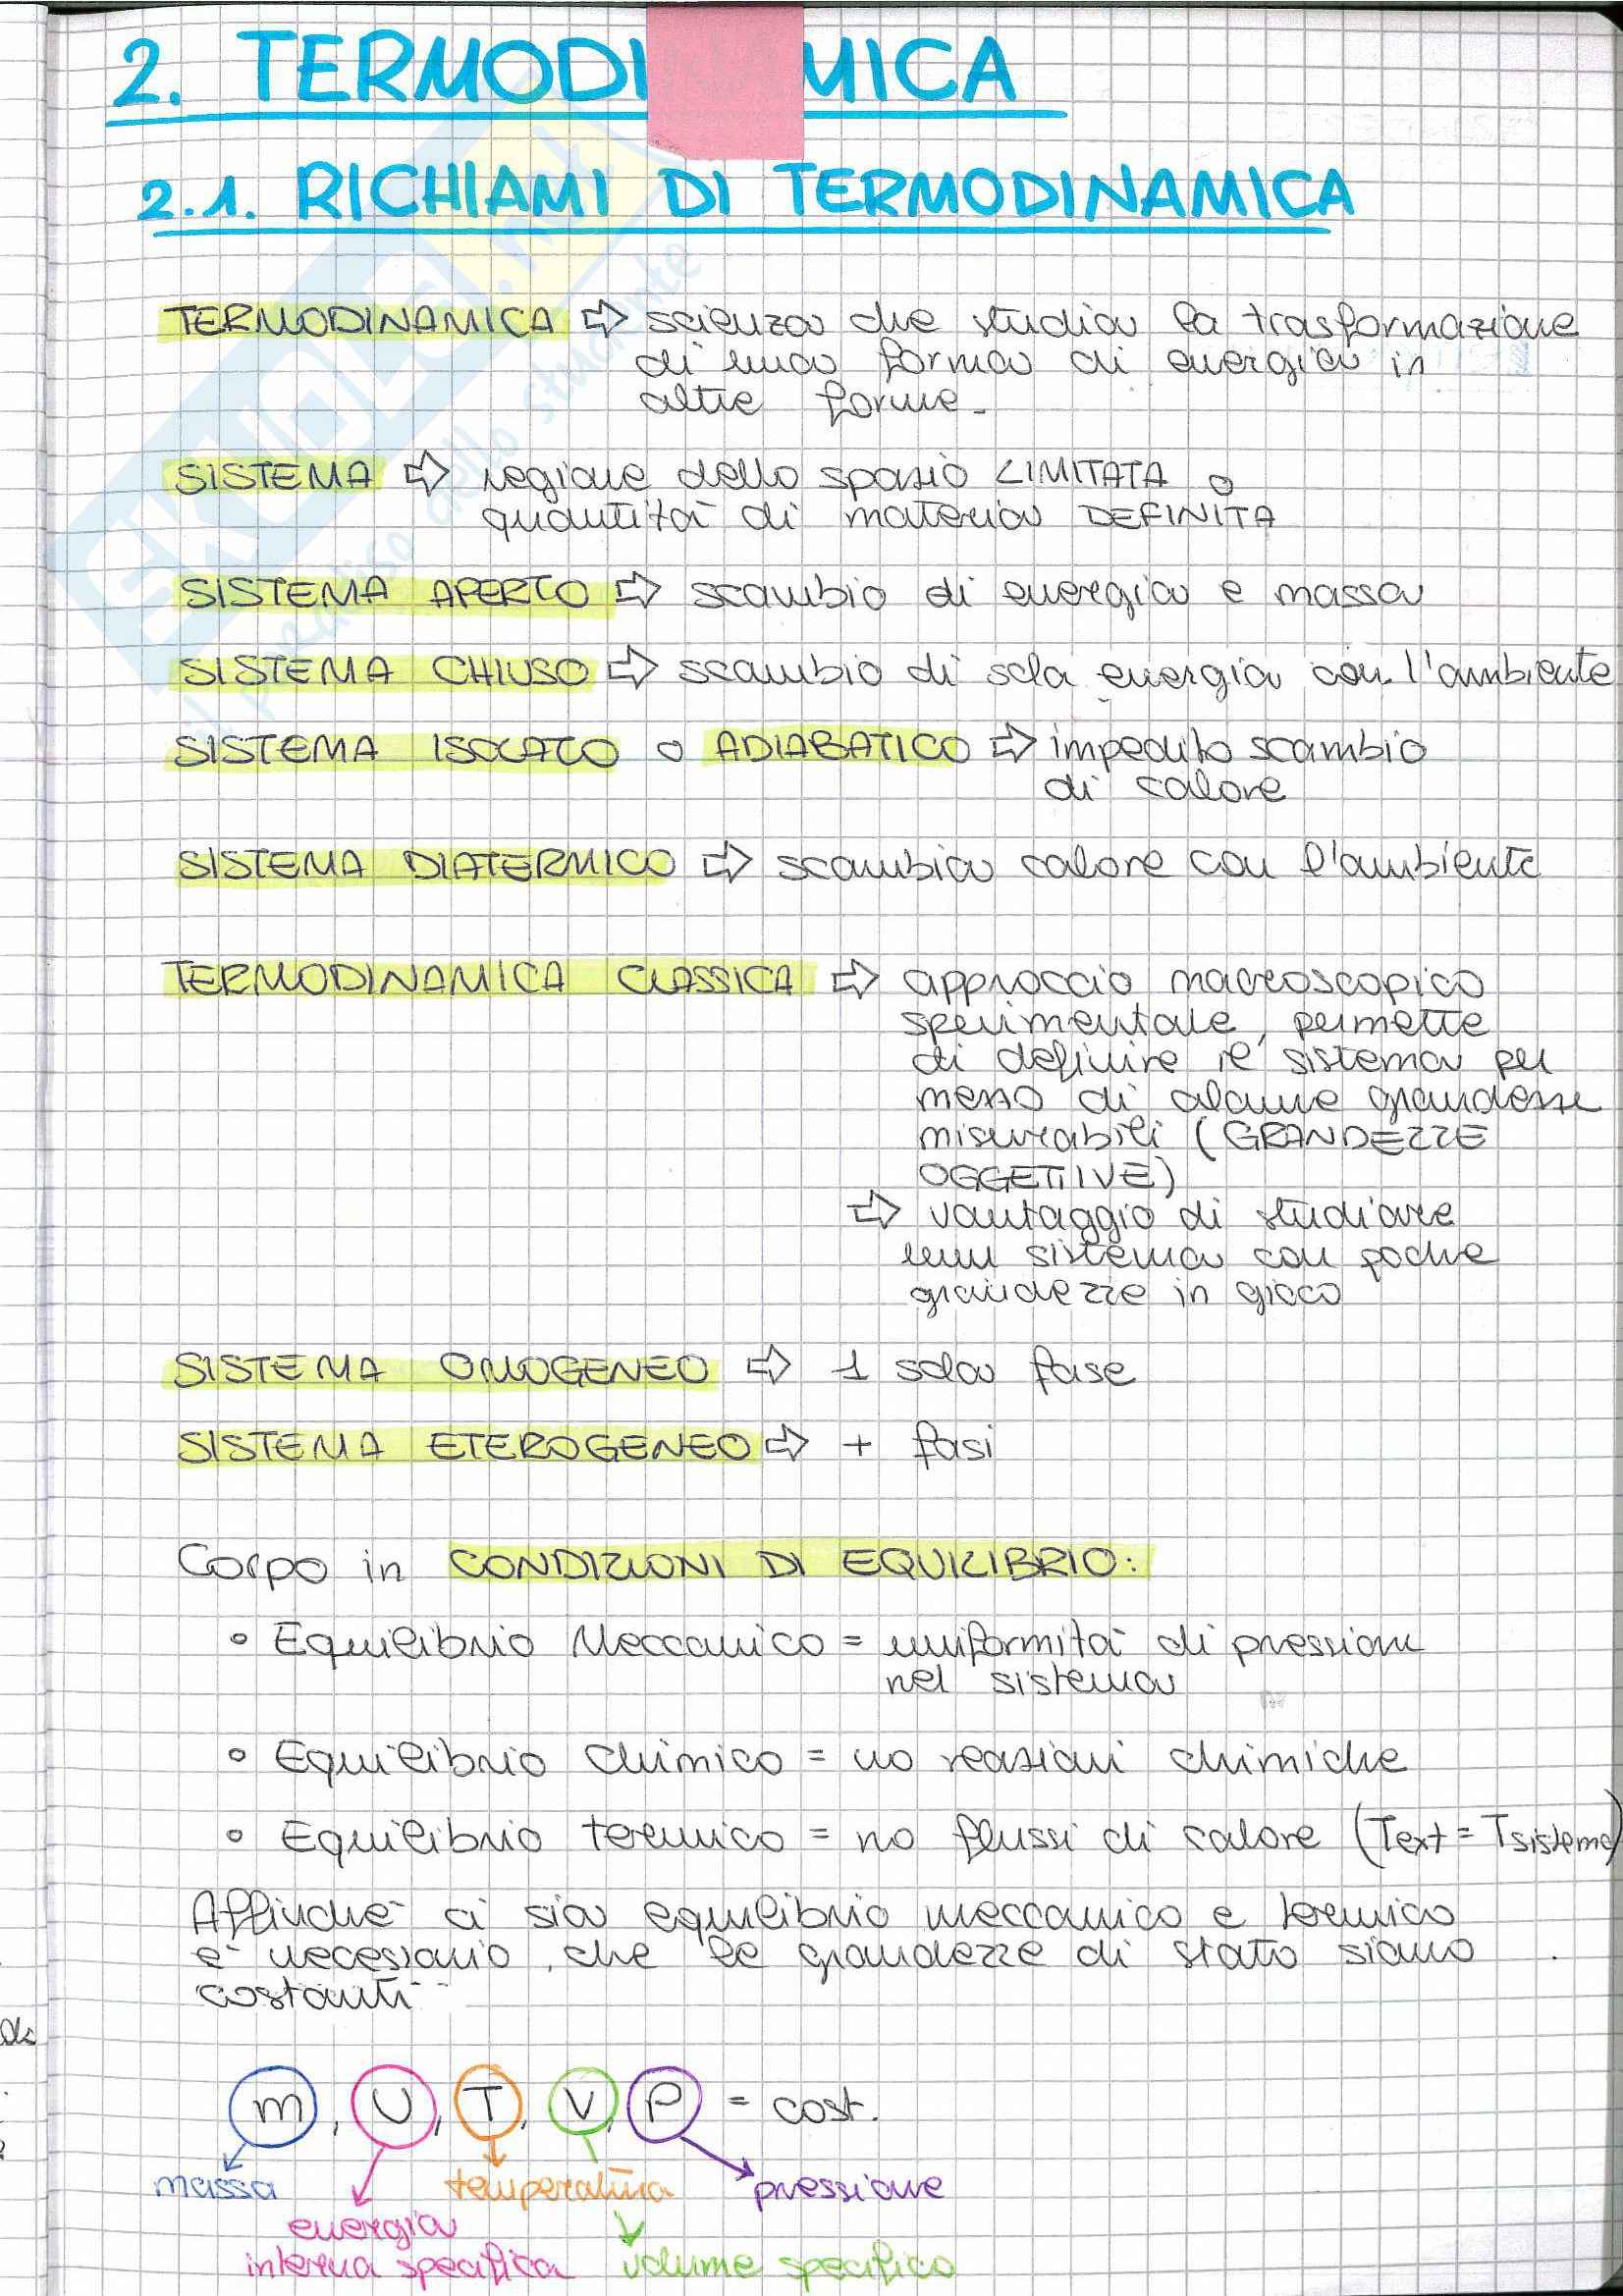 2. TERMODI MICA
2.1. RICHIAMI DI TERMODINAMICA
TERMODINAMICA ⇨ scienza che studia la trasformazione
di una forma di energia in
altre forme.
SISTEMA ⇨ regione dello spazio LIMITATA o
quantità di materia DEFINITA
SISTEMA APERTO ⇨ scambio di energia e massa
SISTEMA CHIUSO ⇨ scambio di sola energia con l'ambiente
SISTEMA ISOLATO o ADIABATICO ⇨ impedito scambio
di calore
SISTEMA DIATERMICO ⇨ scambia calore con l'ambiente
TERMODINAMICA CLASSICA ⇨ approccio macroscopico
sperimentale, permette
di definire il sistema per
mezzo di alcune grandezze
misurabili (GRANDEZZE
OGGETTIVE)
⇨ vantaggio di studiare
un sistema con poche
grandezze in gioco
SISTEMA OMOGENEO ⇨ 1 sola fase
SISTEMA ETEROGENEO ⇨ + fasi
Corpo in CONDIZIONI DI EQUILIBRIO:
• Equilibrio Meccanico = uniformità di pressione
nel sistema
• Equilibrio Chimico = no reazioni chimiche
• Equilibrio termico = no flussi di calore (Text = Tsistema)
Affinché ci sia equilibrio meccanico e termico
è necessario che le grandezze di stato siano
costanti
m, U, T, V, P = cost.
massa temperatura pressione
energia
interna specifica volume specifico
SKUOLA.net
il paradiso dello studente